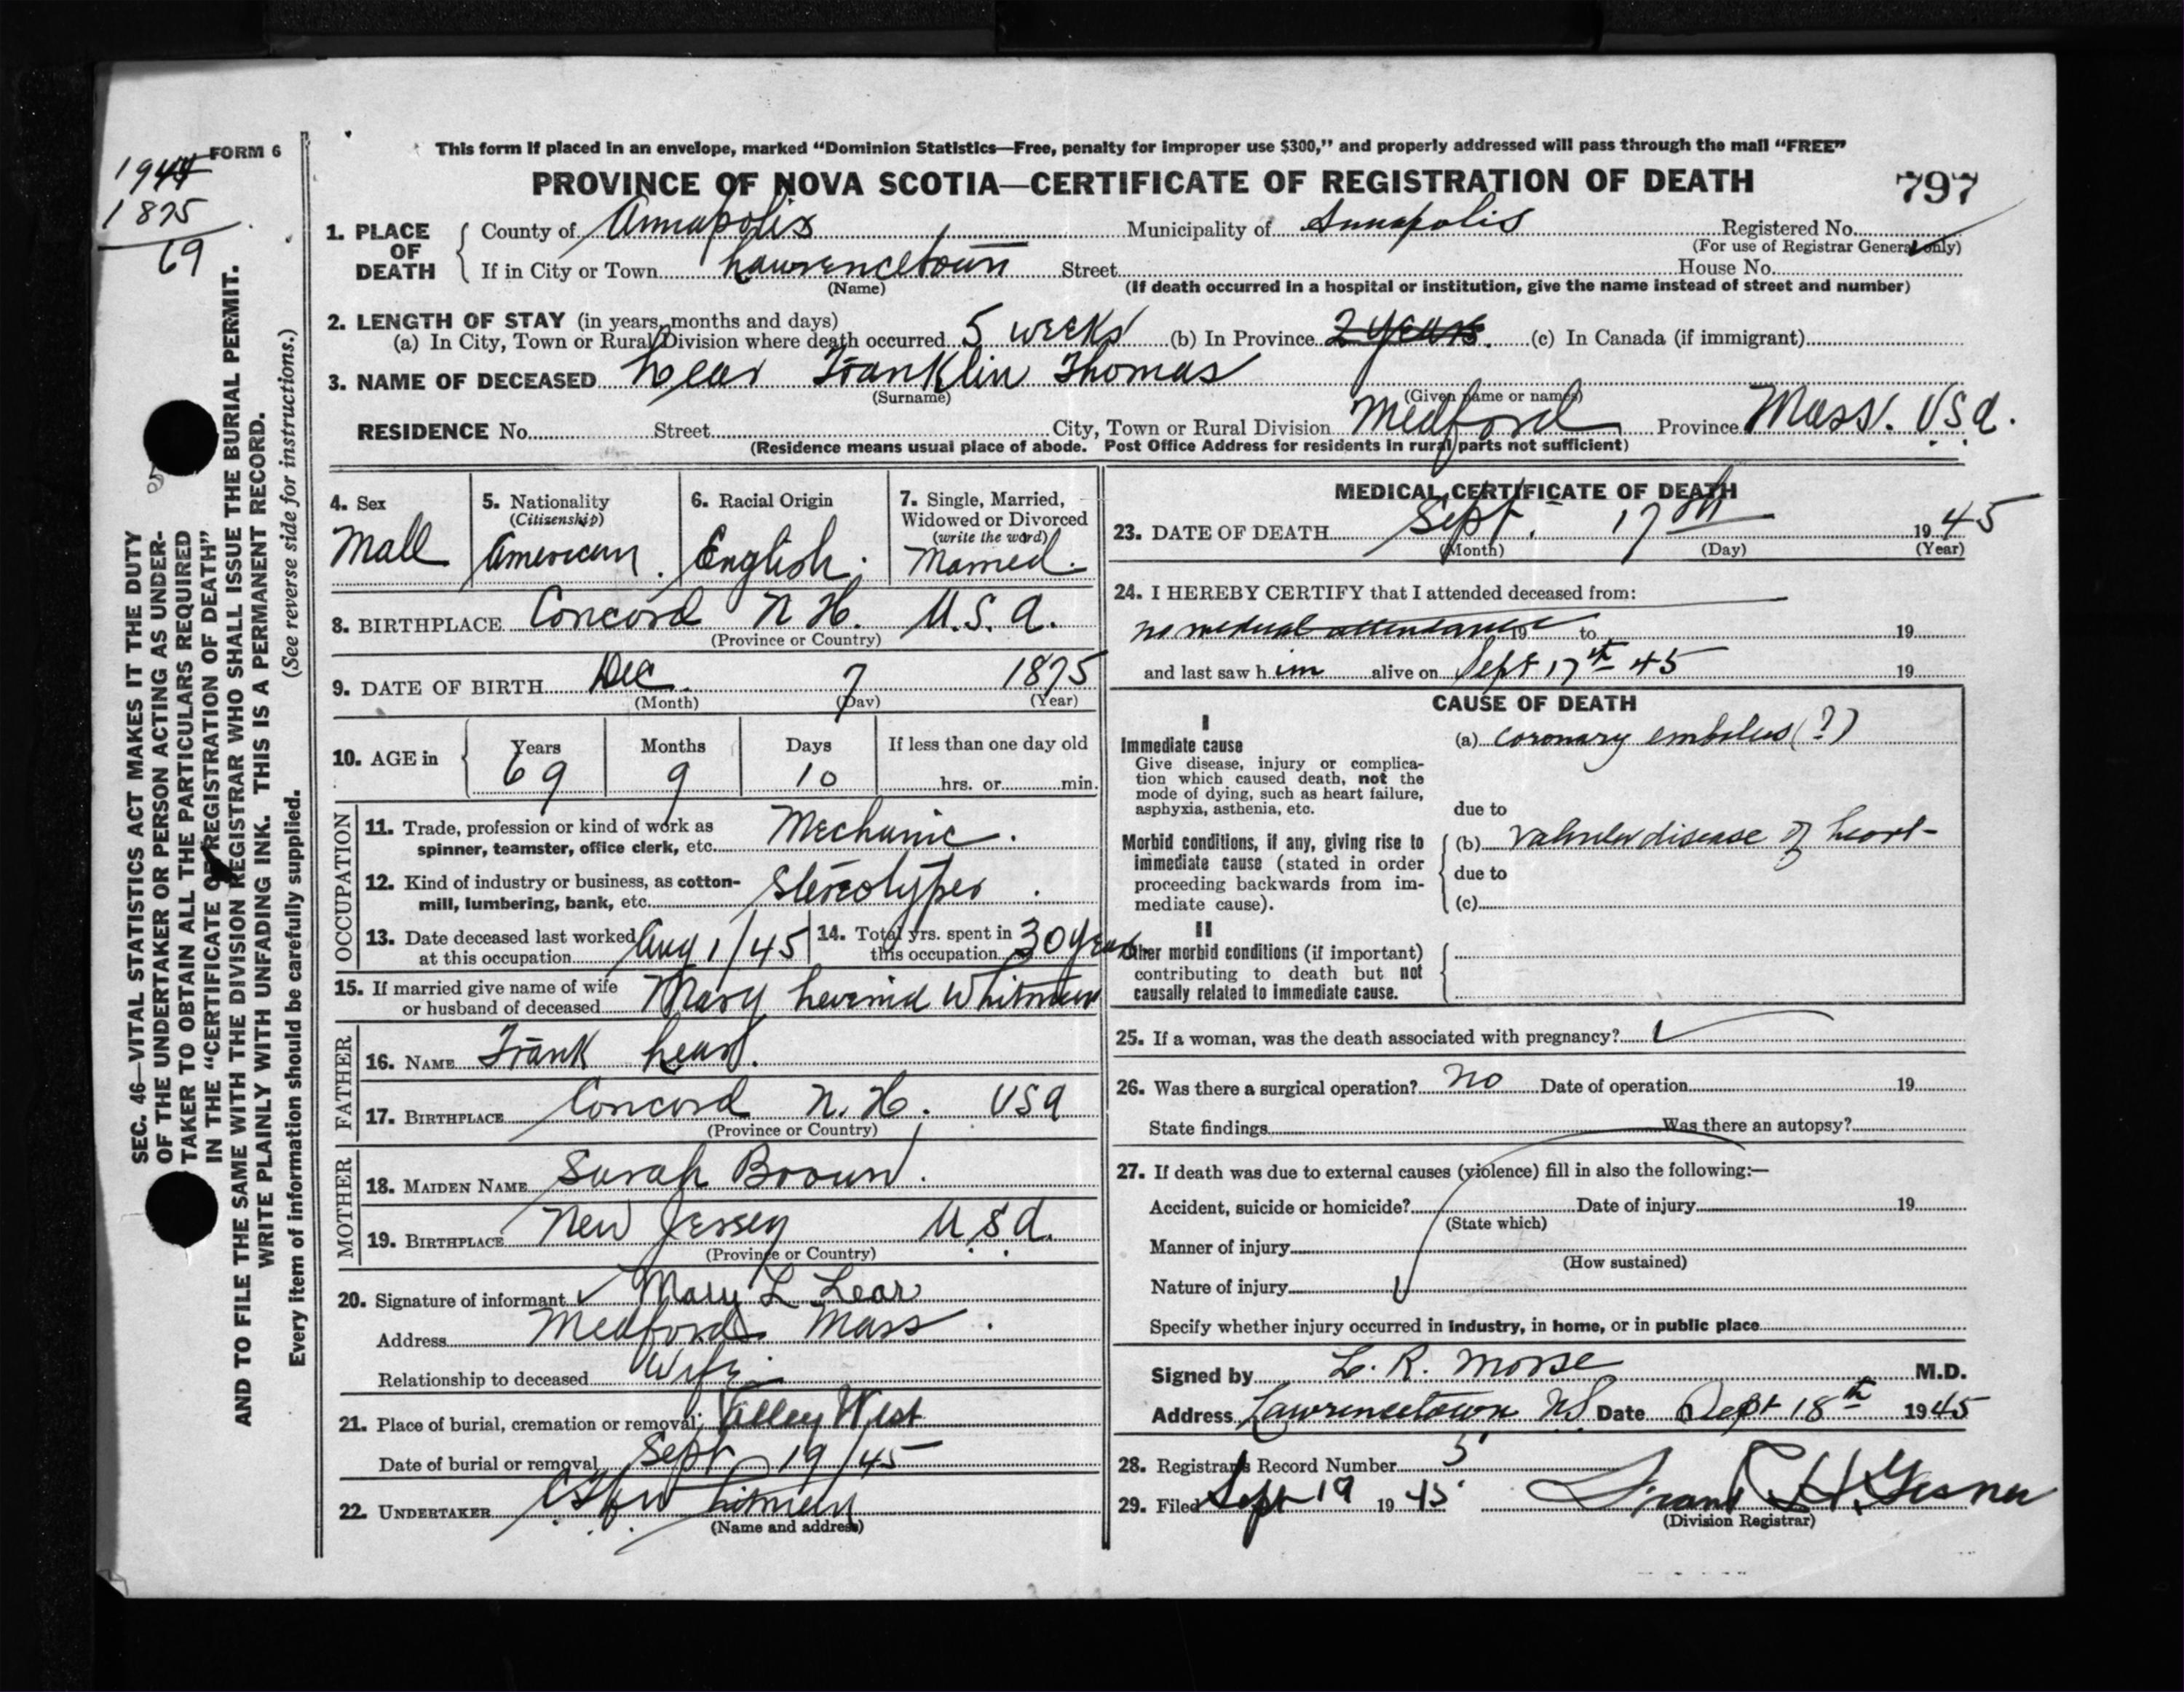 This form if placed in an envelope, marked “Dominion Statistics—Free, penalty for improper use $300,” and properly addressed will pass through the mail “FREE”
FORM 6
1944
1875
69
PROVINCE OF NOVA SCOTIA—CERTIFICATE OF REGISTRATION OF DEATH
797
1. PLACE OF DEATH
County of Annapolis Municipality of Annapolis Registered No.
(For use of Registrar General only)
If in City or Town Lawrencetown Street House No.
(Name) (If death occurred in a hospital or institution, give the name instead of street and number)
2. LENGTH OF STAY (in years, months and days)
(a) In City, Town or Rural Division where death occurred 5 weeks (b) In Province 2 years (c) In Canada (if immigrant)
3. NAME OF DECEASED Lear Franklin Thomas
(Surname) (Given name or names)
RESIDENCE No. Street City, Town or Rural Division Medford Province Mass. USA.
(Residence means usual place of abode. Post Office Address for residents in rural parts not sufficient)
4. Sex
Male
5. Nationality
(Citizenship)
American.
6. Racial Origin
English.
7. Single, Married,
Widowed or Divorced
(write the word)
Married.
8. BIRTHPLACE Concord N.H. U.S.A.
(Province or Country)
9. DATE OF BIRTH Dec. 7 1875
(Month) (Day) (Year)
10. AGE in
Years Months Days If less than one day old
69 9 10 hrs. or min.
OCCUPATION
11. Trade, profession or kind of work as
spinner, teamster, office clerk, etc. Mechanic.
12. Kind of industry or business, as cotton-
mill, lumbering, bank, etc. Stereotyper.
13. Date deceased last worked
at this occupation Aug 1/45
14. Total yrs. spent in
this occupation 30 years
15. If married give name of wife
or husband of deceased Mary Whitman
FATHER
16. NAME Frank Lear.
17. BIRTHPLACE Concord N.H. USA
(Province or Country)
MOTHER
18. MAIDEN NAME Sarah Brown.
19. BIRTHPLACE New Jersey U.S.A.
(Province or Country)
20. Signature of informant Mary L Lear
Address Medford Mass.
Relationship to deceased Wife
21. Place of burial, cremation or removal Valley West
Date of burial or removal Sept 19/45
22. UNDERTAKER Whitman
(Name and address)
MEDICAL CERTIFICATE OF DEATH
23. DATE OF DEATH Sept. 17th 1945
(Month) (Day) (Year)
24. I HEREBY CERTIFY that I attended deceased from:
no medical attendance 19 to 19
and last saw h im alive on Sept 17th 45 19
CAUSE OF DEATH
I
Immediate cause
Give disease, injury or complica-
tion which caused death, not the
mode of dying, such as heart failure,
asphyxia, asthenia, etc.
(a) coronary embolus (?)
due to
Morbid conditions, if any, giving rise to
immediate cause (stated in order
proceeding backwards from im-
mediate cause).
(b) Valvular disease of heart
due to
(c)
II
Other morbid conditions (if important)
contributing to death but not
causally related to immediate cause.
25. If a woman, was the death associated with pregnancy?
26. Was there a surgical operation? No Date of operation 19
State findings Was there an autopsy?
27. If death was due to external causes (violence) fill in also the following:—
Accident, suicide or homicide? Date of injury 19
(State which)
Manner of injury
(How sustained)
Nature of injury
Specify whether injury occurred in industry, in home, or in public place
Signed by L. R. Morse M.D.
Address Lawrencetown NS Date Sept 18th 1945
28. Registrar's Record Number 5
29. Filed Sept 19 1945 H. Gesner
(Division Registrar)
SEC. 46—VITAL STATISTICS ACT MAKES IT THE DUTY
OF THE UNDERTAKER OR PERSON ACTING AS UNDER-
TAKER TO OBTAIN ALL THE PARTICULARS REQUIRED
IN THE “CERTIFICATE OF REGISTRATION OF DEATH”
AND TO FILE THE SAME WITH THE DIVISION REGISTRAR WHO SHALL ISSUE THE BURIAL PERMIT.
WRITE PLAINLY WITH UNFADING INK. THIS IS A PERMANENT RECORD.
Every item of information should be carefully supplied. (See reverse side for instructions.)